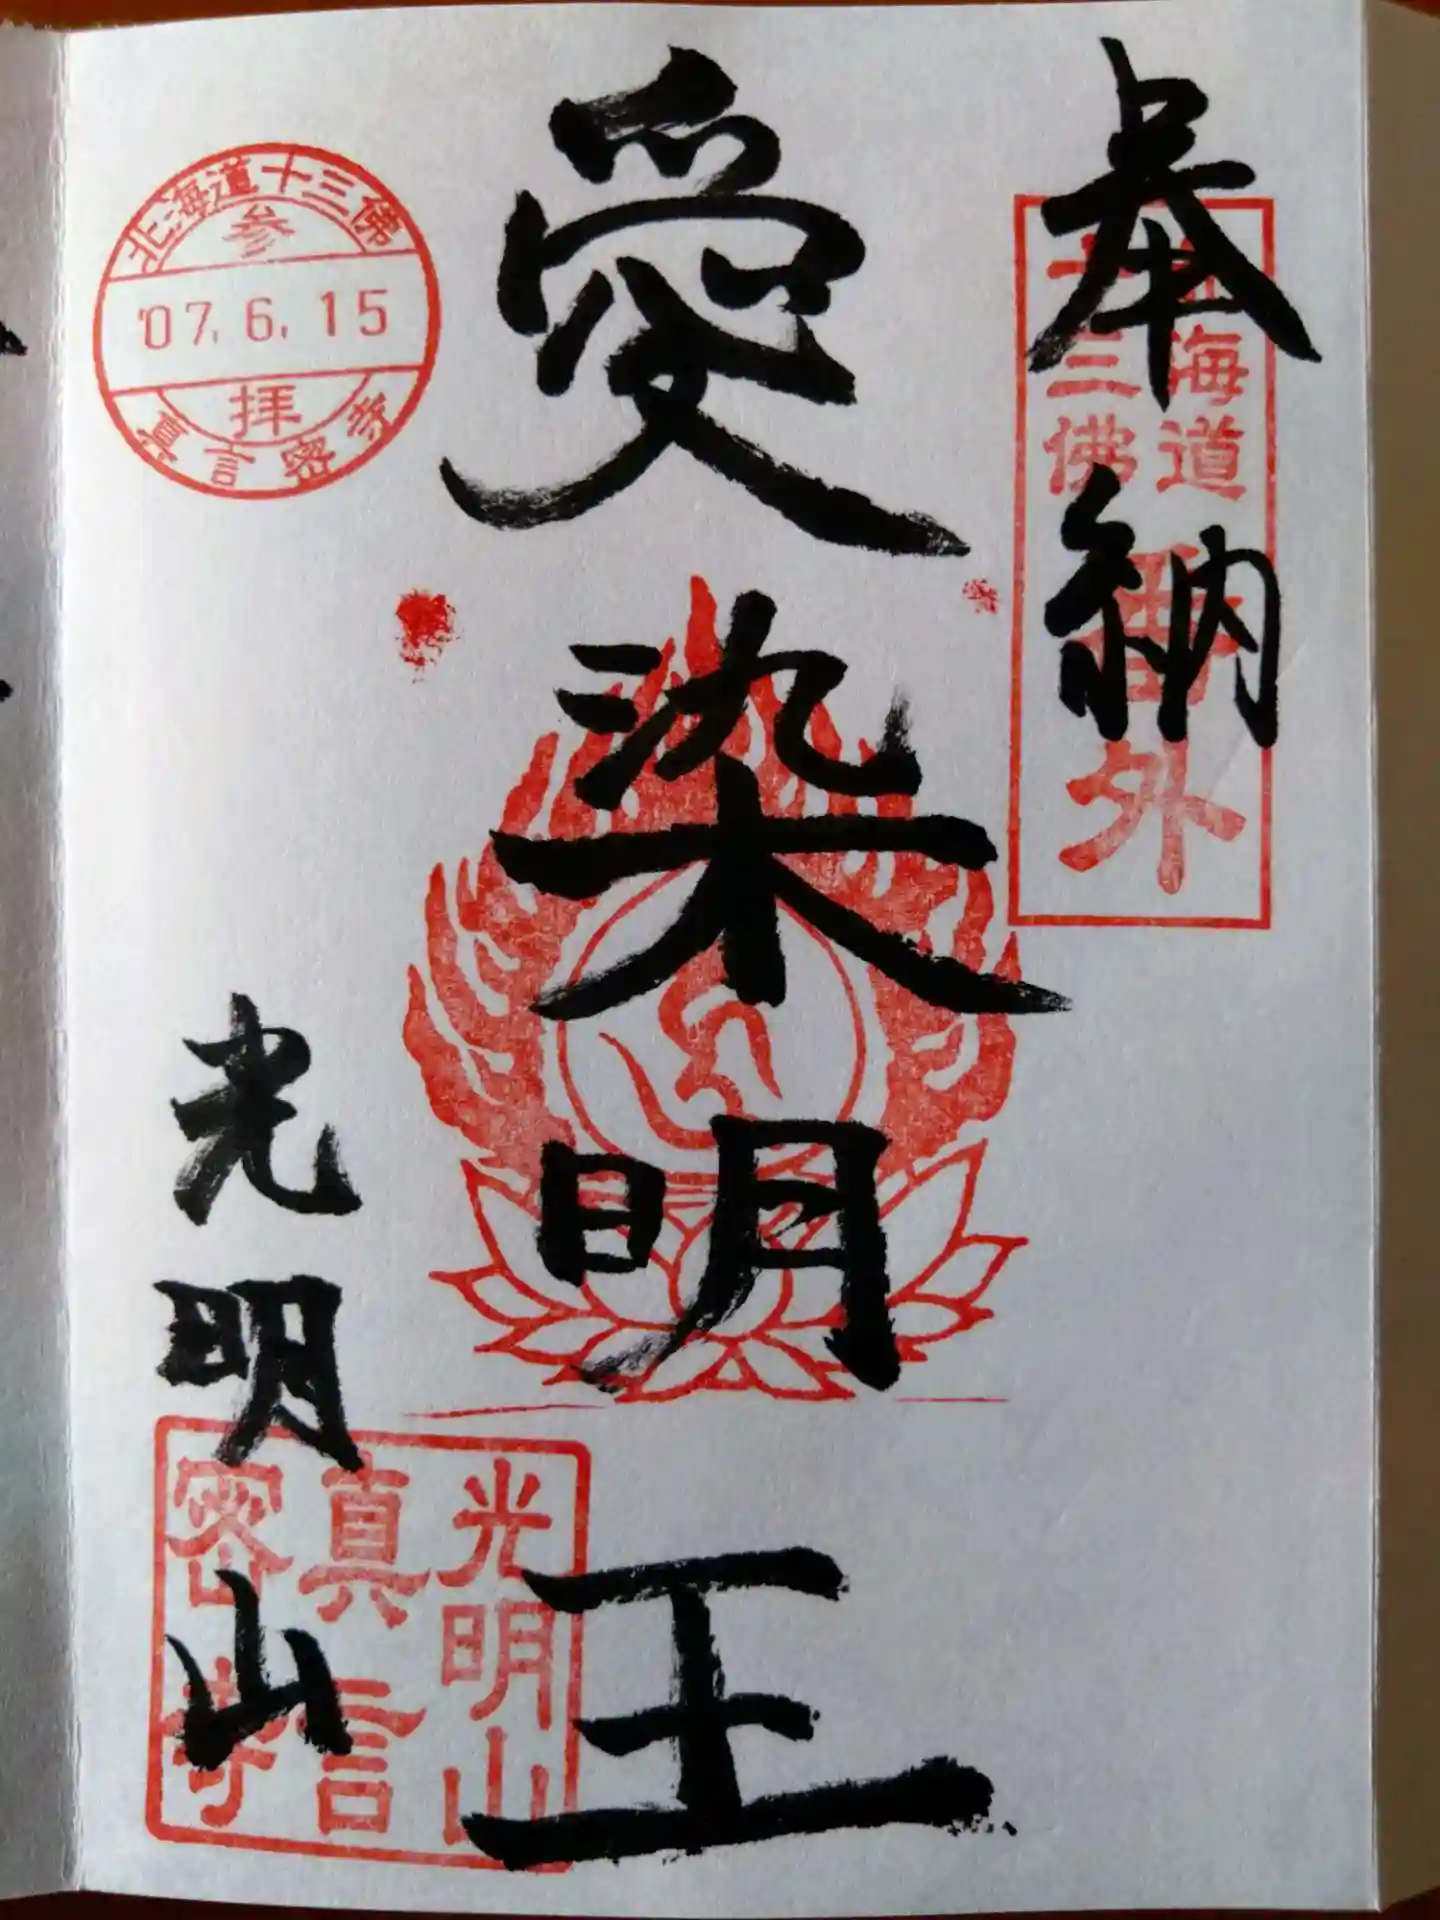 奉納
北海道
十三佛
番外
愛染明王
北海道十三佛
参
'07.6.15
拝
真言密寺
光明山
光明山
真言
密寺